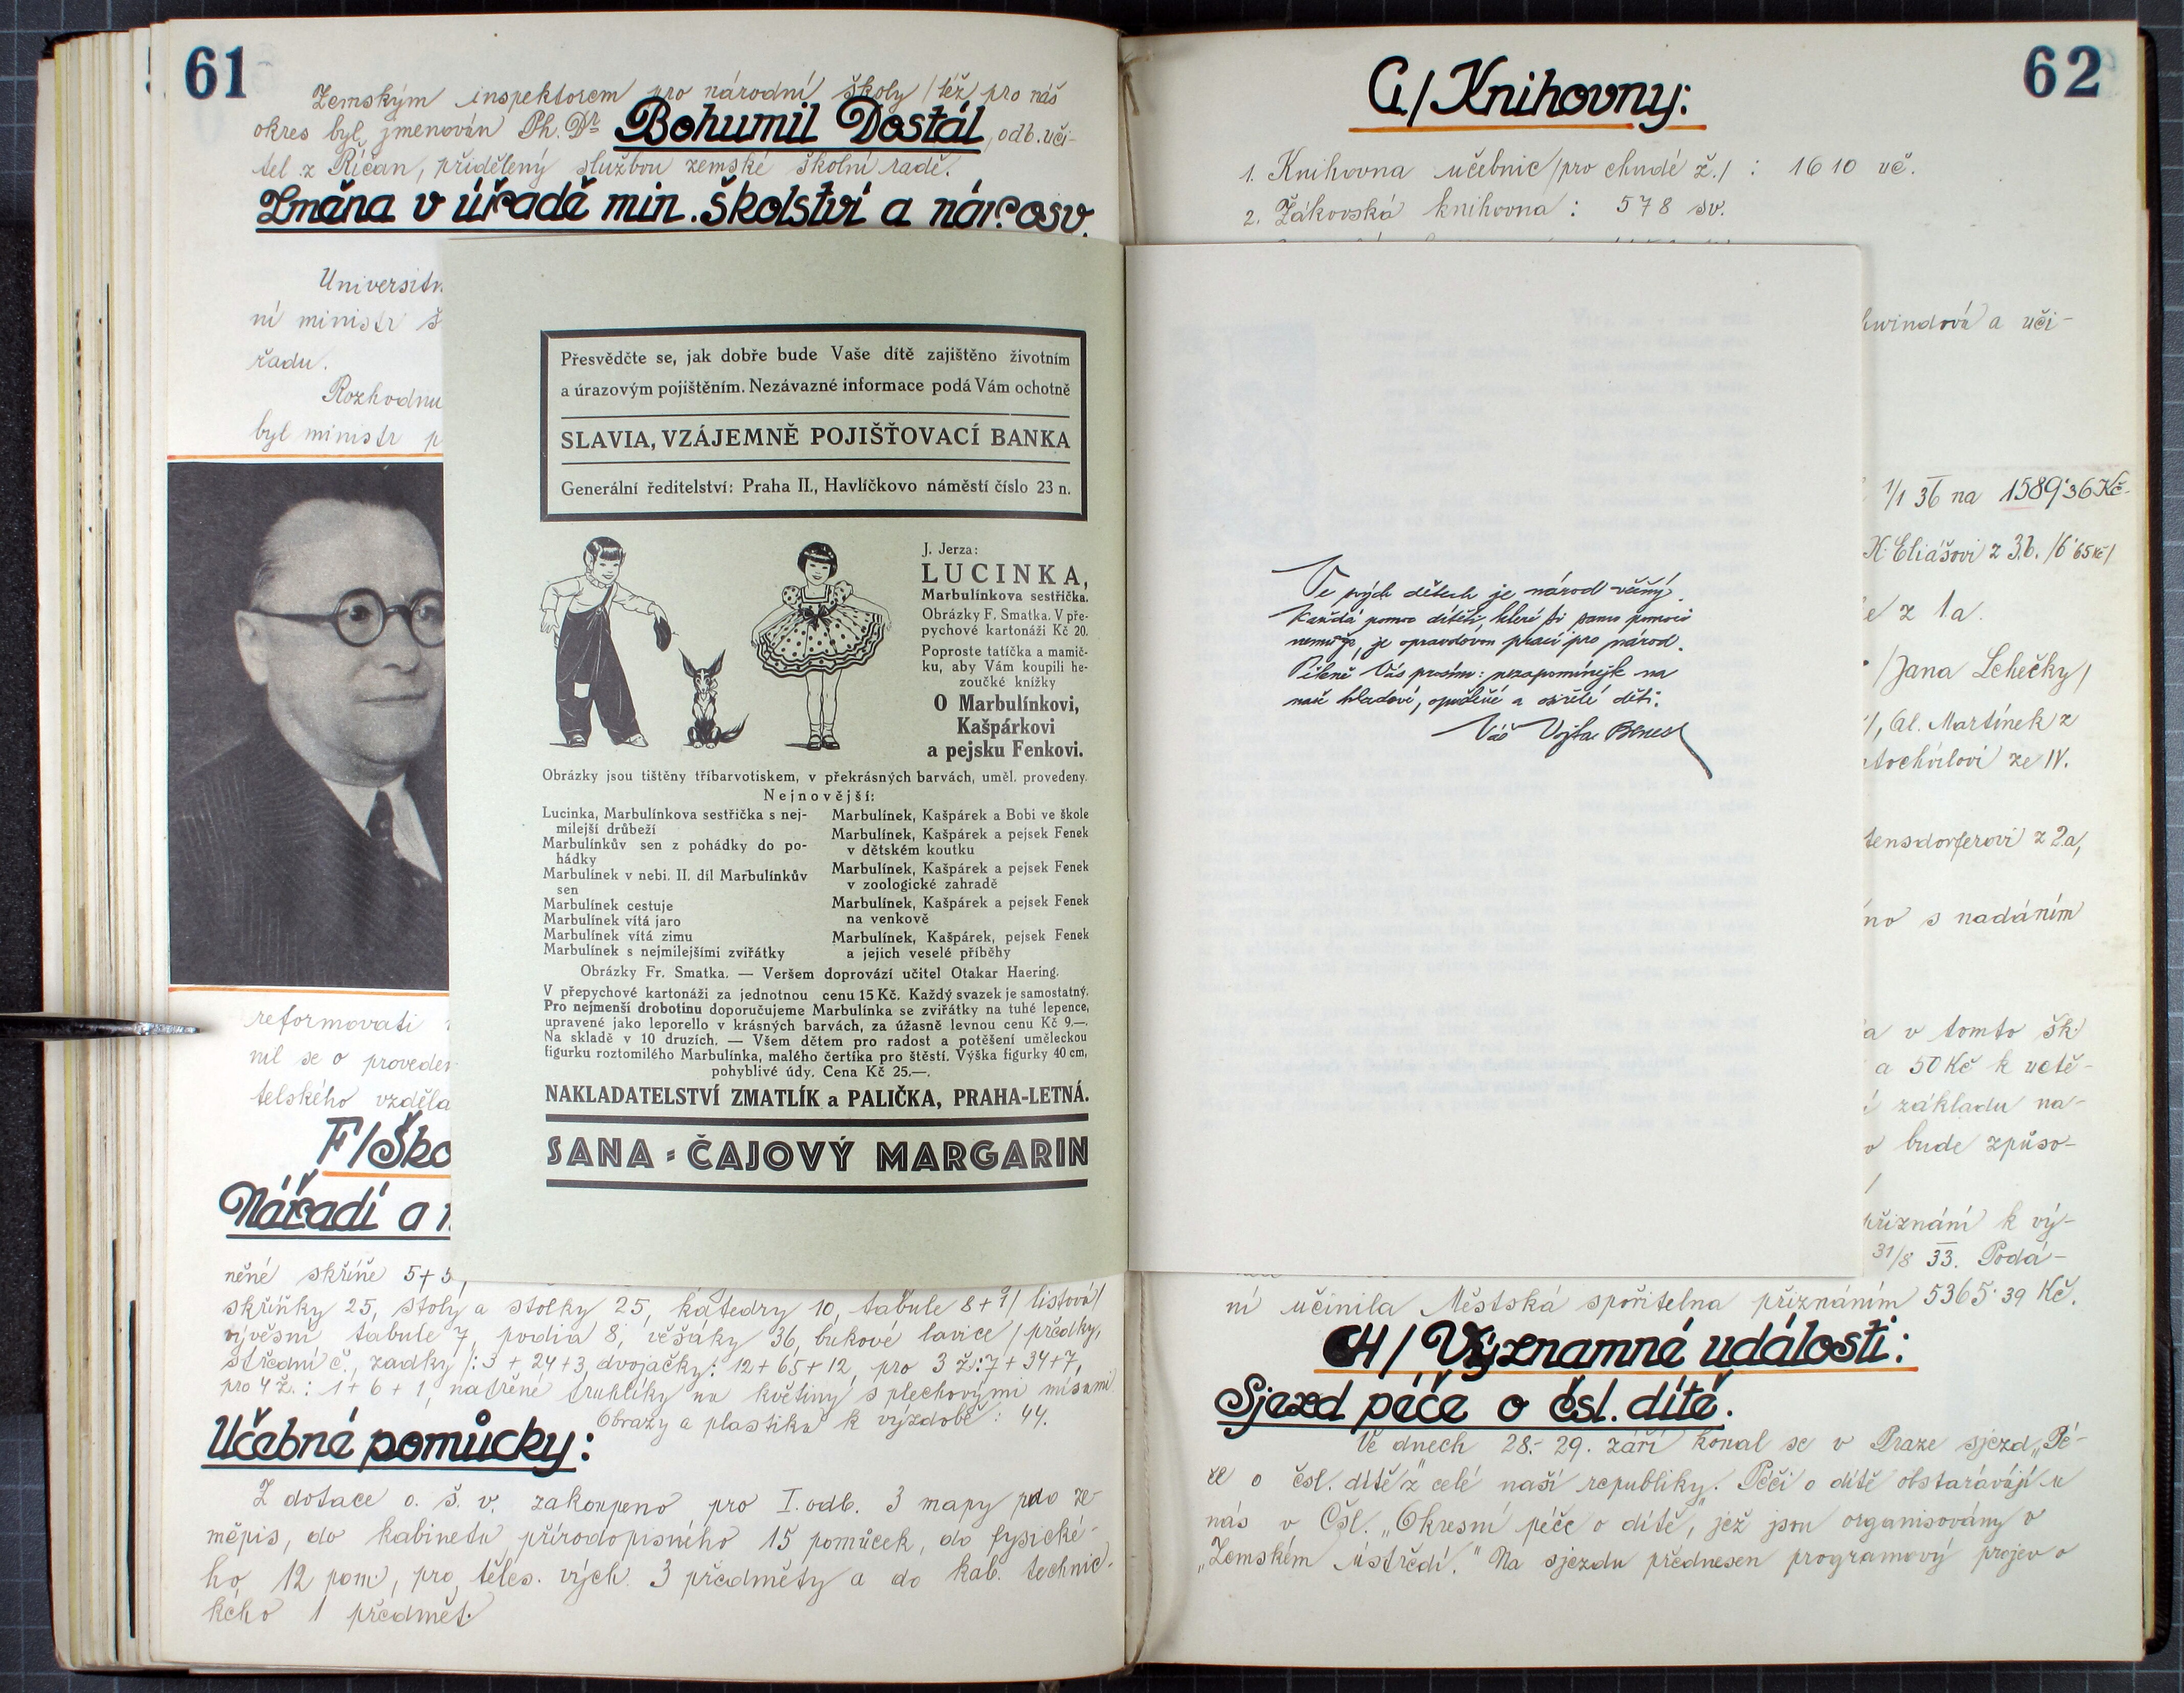 61
Zemským inspektorem pro národní školy /též pro náš
okres byl jmenován Ph. Dr Bohumil Dostál, odb. uči-
tel z Říčan, přidělený službou zemské školní radě.
Změna v úřadě min. školství a nár. osv.
Universitn
ní ministr š
řadu.
Rozhodnu
byl ministr p
reformovati
nil se o proveden
telského vzděla
F/Ško
Nářadí a n
něné skříně 5+5,
skříňky 25, stoly a stolky 25, katedry 10, tabule 8+9/ listová/
vývěsní tabule 7, podia 8, věšáky 36, bukové lavice /předky,
střední č., zadky/: 3 + 24+3, dvojačky: 12+65+12, pro 3 ž.: 7+34+7,
pro 4 ž.: 1+6+1, natřené truhlíky na květiny s plechovými mísami
Obrazy a plastika k výzdobě: 44.
Učebné pomůcky:
Z dotace o. š. v. zakoupeno pro I. odb. 3 mapy pro ze-
měpis, do kabinetu přírodopisného 15 pomůcek, do fysické-
ho 12 pom., pro těles. vých. 3 předměty a do kab. technic-
kého 1 předmět.
Přesvědčte se, jak dobře bude Vaše dítě zajištěno životním
a úrazovým pojištěním. Nezávazné informace podá Vám ochotně
SLAVIA, VZÁJEMNĚ POJIŠŤOVACÍ BANKA
Generální ředitelství: Praha II., Havlíčkovo náměstí číslo 23 n.
J. Jerza:
LUCINKA,
Marbulínkova sestřička.
Obrázky F. Smatka. V pře-
pychové kartonáži Kč 20.
Poproste tatíčka a mamič-
ku, aby Vám koupili he-
zoučké knížky
O Marbulínkovi,
Kašpárkovi
a pejsku Fenkovi.
Obrázky jsou tištěny tříbarvotiskem, v překrásných barvách, uměl. provedeny.
Nejnovější:
Lucinka, Marbulínkova sestřička s nej-
milejší drůbeží
Marbulínkův sen z pohádky do po-
hádky
Marbulínek v nebi. II. díl Marbulínkův
sen
Marbulínek cestuje
Marbulínek vítá jaro
Marbulínek vítá zimu
Marbulínek s nejmilejšími zviřátky
Marbulínek, Kašpárek a Bobi ve škole
Marbulínek, Kašpárek a pejsek Fenek
v dětském koutku
Marbulínek, Kašpárek a pejsek Fenek
v zoologické zahradě
Marbulínek, Kašpárek a pejsek Fenek
na venkově
Marbulínek, Kašpárek, pejsek Fenek
a jejich veselé příběhy
Obrázky Fr. Smatka. — Veršem doprovází učitel Otakar Haering.
V přepychové kartonáži za jednotnou cenu 15 Kč. Každý svazek je samostatný.
Pro nejmenší drobotinu doporučujeme Marbulínka se zviřátky na tuhé lepence,
upravené jako leporello v krásných barvách, za úžasně levnou cenu Kč 9.—.
Na skladě v 10 druzích. — Všem dětem pro radost a potěšení uměleckou
figurku roztomilého Marbulínka, malého čertíka pro štěstí. Výška figurky 40 cm,
pohyblivé údy. Cena Kč 25.—.
NAKLADATELSTVÍ ZMATLÍK a PALIČKA, PRAHA-LETNÁ.
SANA - ČAJOVÝ MARGARIN
62
G/Knihovny:
1. Knihovna učebnic/pro chudé ž./ : 1610 uč.
2. Žákovská knihovna : 578 sv.
Ve svých dětech je národ věčný.
Každá pomoc dítěti, které si samo pomoci
nemůže, je opravdovou prací pro národ.
Pěkně Vás prosím: nezapomínejte na
naše hladové, opuštěné a osiřelé děti.
Váš Vojta Beneš
hwindová a uči-
1/1 36 na 1589'36 Kč.
K. Eliášovi z 3.b. /6'65 Kč/
z 1a.
/Jana Lehečky/
Al. Martínek z
tochvilovi ze IV.
tensdorferovi z 2a,
no s nadáním
a v tomto šk.
a 50 Kč k uctě-
základu na-
bude způso-
přiznání k vý-
31/8 33. Podá-
ní učinila Městská spořitelna přiznáním 5365'39 Kč.
CH/Významné události:
Sjezd péče o čsl. dítě.
Ve dnech 28.- 29. září konal se v Praze sjezd „Pé-
če o čsl. dítě“ z celé naší republiky. Péči o dítě obstarávají u
nás v Čsl. „Okresní péče o dítě“, jež jsou organisovány v
„Zemském ústředí.“ Na sjezdu přednesen programový projev o